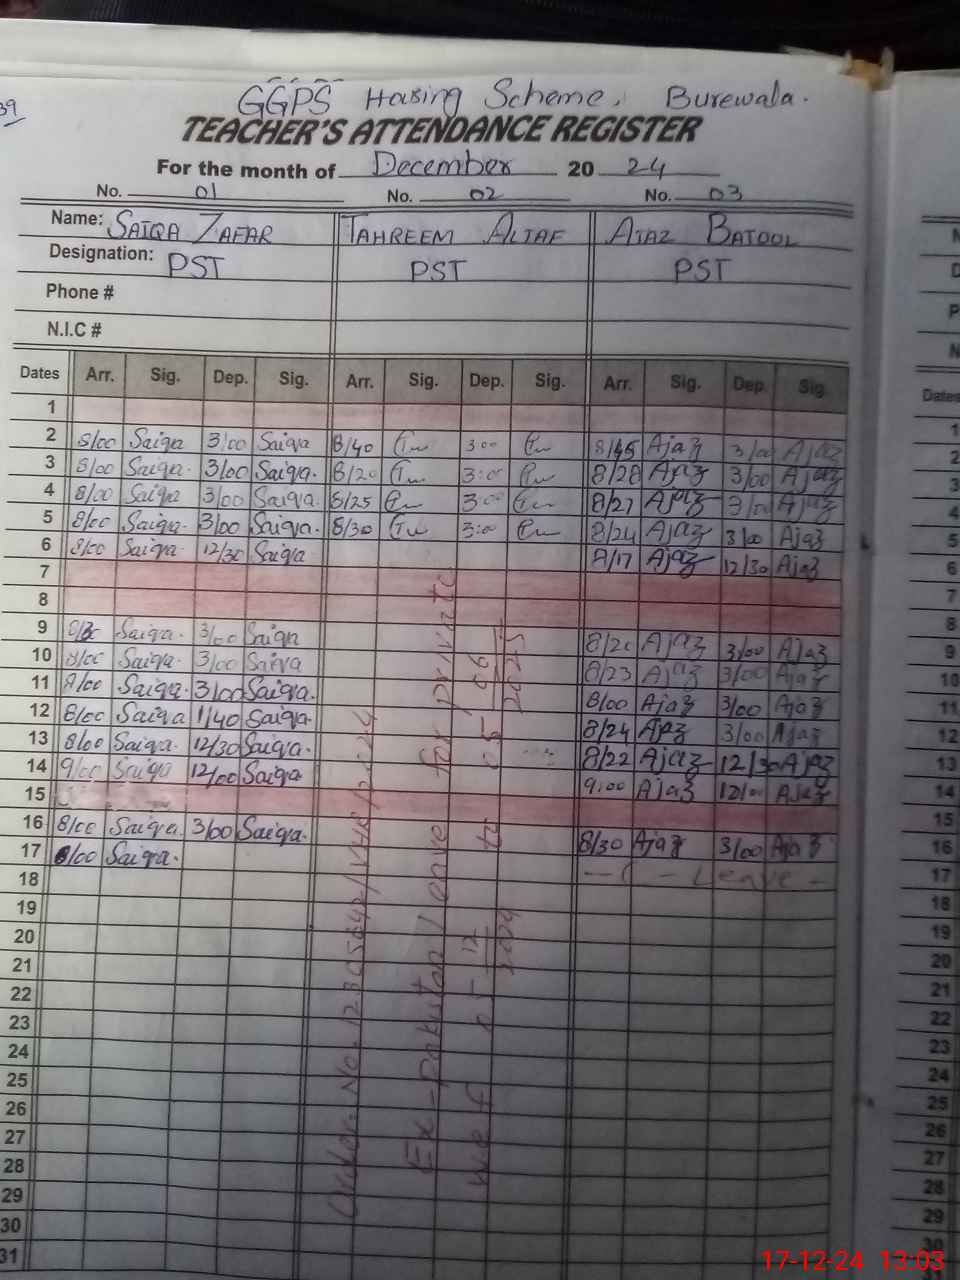 39
GGPS Housing Scheme, Burewala.
TEACHER'S ATTENDANCE REGISTER
For the month of December 20 24
No. 01 No. 02 No. 03
Name: SAIQA ZAFAR TAHREEM ALTAF AJAZ BATOOL
Designation: PST PST PST
Phone #
N.I.C #
Dates Arr. Sig. Dep. Sig. Arr. Sig. Dep. Sig. Arr. Sig. Dep. Sig.
1
2 8/00 Saiqa 3/00 Saiqa 8/40 3:00 8/45 Ajaz 3/00 Ajaz
3 8/00 Saiqa. 3/00 Saiqa. 8/20 3:00 8/28 Ajaz 3/00 Ajaz
4 8/00 Saiqa 3/00 Saiqa. 8/25 3:00 8/27 Ajaz 3/00 Ajaz
5 8/00 Saiqa. 3/00 Saiqa. 8/30 3:00 8/24 Ajaz 3/00 Ajaz
6 8/00 Saiqa. 12/30 Saiqa 8/17 Ajaz 12/30 Ajaz
7
8
9 Saiqa. 3/00 Saiqa 8/20 Ajaz 3/00 Ajaz
10 8/00 Saiqa. 3/00 Saiqa 8/23 Ajaz 3/00 Ajaz
11 8/00 Saiqa. 3/00 Saiqa. 8/00 Ajaz 3/00 Ajaz
12 8/00 Saiqa 1/40 Saiqa. 8/24 Ajaz 3/00 Ajaz
13 8/00 Saiqa. 12/30 Saiqa. 8/22 Ajaz 12/30 Ajaz
14 9/00 Saiqa 12/00 Saiqa 9:00 Ajaz 12/00 Ajaz
15
16 8/00 Saiqa. 3/00 Saiqa. 8/30 Ajaz 3/00 Ajaz
17 8/00 Saiqa. Leave
18
19
20
21
22
23
24
25
26
27
28
29
30
31
Order No.
Ex-Pakistan Leave for private
w.e.f 05-12-2024 to 05-06-2025
Dates
1
2
3
4
5
6
7
8
9
10
11
12
13
14
15
16
17
18
19
20
21
22
23
24
25
26
27
28
29
30
17-12-24 13:03